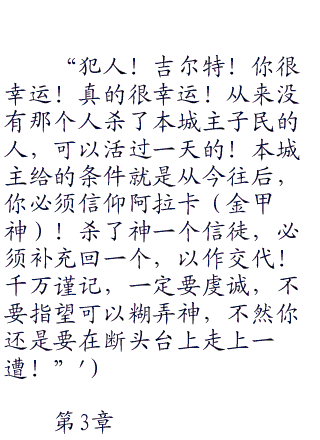 “犯人！吉尔特！你很
幸运！真的很幸运！从来没
有那个人杀了本城主子民的
人，可以活过一天的！本城
主给的条件就是从今往后，
你必须信仰阿拉卡（金甲
神）！杀了神一个信徒，必
须补充回一个，以作交代！
千万谨记，一定要虔诚，不
要指望可以糊弄神，不然你
还是要在断头台上走上一
遭！”′）
第3章